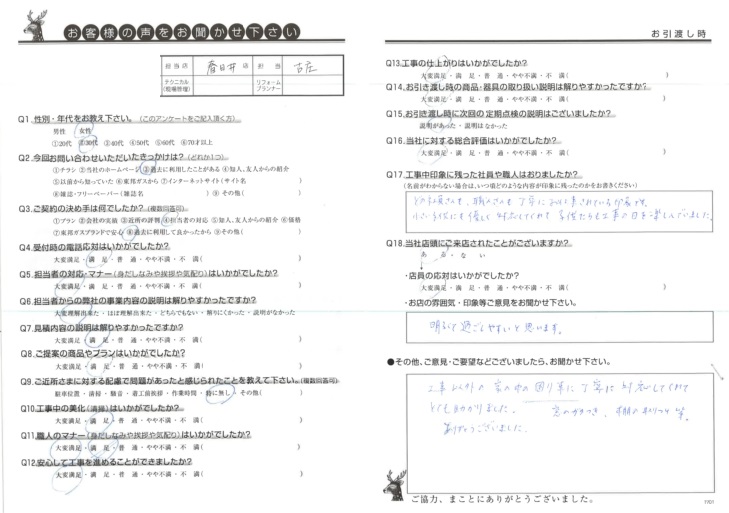 お客様の声をお聞かせ下さい
担当店 春日井 店 担当 古庄
テクニカル(現場管理) リフォームプランナー
Q1.性別・年代をお教え下さい。(このアンケートをご記入頂く方)
男性 女性
①20代 ②30代 ③40代 ④50代 ⑤60代 ⑥70才以上
Q2.今回お問い合わせいただいたきっかけは?(どれか1つ)
①チラシ ②当社のホームページ ③過去に利用したことがある ④知人、友人からの紹介
⑤以前から知っていた ⑥東邦ガスから ⑦インターネットサイト(サイト名 )
⑧雑誌・フリーペーパー(雑誌名 ) ⑨その他( )
Q3.ご契約の決め手は何でしたか?(複数回答可)
①プラン ②会社の実績 ③近所の評判 ④担当者の対応 ⑤知人、友人からの紹介 ⑥価格
⑦東邦ガスブランドで安心 ⑧過去に利用して良かったから ⑨その他( )
Q4.受付時の電話応対はいかがでしたか?
大変満足・満 足・普 通・やや不満・不 満( )
Q5.担当者の対応・マナー(身だしなみや挨拶や気配り)はいかがでしたか?
大変満足・満 足・普 通・やや不満・不 満( )
Q6.担当者からの弊社の事業内容の説明は解りやすかったですか?
大変理解出来た・ほぼ理解出来た・どちらでもない・解りにくかった・説明がなかった
Q7.見積内容の説明は解りやすかったですか?
大変満足・満 足・普 通・やや不満・不 満( )
Q8.ご提案の商品やプランはいかがでしたか?
大変満足・満 足・普 通・やや不満・不 満( )
Q9.ご近所さまに対する配慮で問題があったと感じられたことを教えて下さい。(複数回答可)
駐車位置・清掃・騒音・着工前挨拶・作業時間・特に無し・その他( )
Q10.工事中の美化(清掃)はいかがでしたか?
大変満足・満 足・普 通・やや不満・不 満( )
Q11.職人のマナー(身だしなみや挨拶や気配り)はいかがでしたか?
大変満足・満 足・普 通・やや不満・不 満( )
Q12.安心して工事を進めることができましたか?
大変満足・満 足・普 通・やや不満・不 満( )
お引渡し時
Q13.工事の仕上がりはいかがでしたか?
大変満足・満 足・普 通・やや不満・不 満( )
Q14.お引き渡し時の商品・器具の取り扱い説明は解りやすかったですか?
大変満足・満 足・普 通・やや不満・不 満( )
Q15.お引き渡し時に次回の定期点検の説明はございましたか?
説明があった・説明はなかった
Q16.当社に対する総合評価はいかがでしたか?
大変満足・満 足・普 通・やや不満・不 満( )
Q17.工事中印象に残った社員や職人はおりましたか?
(名前がわからない場合は、いつ頃どのような内容が印象に残ったのかをお書きください)
どの社員さんも、職人さんも 丁寧に
小さい子供にも優しく 対応してくれて 子供たちも工事の日を楽しんでいました。
Q18.当社店頭にご来店されたことがございますか?
あ る・な い
・店員の応対はいかがでしたか?
大変満足・満 足・普 通・やや不満・不 満( )
・お店の雰囲気・印象等ご意見をお聞かせ下さい。
明るくて過ごしやすいと思います。
●その他、ご意見・ご要望などございましたら、お聞かせ下さい。
工事以外の 家の中の困り事に丁寧に対応してくれて
とても助かりました。 窓のガタつき、棚の取りつけ 等。
ありがとうございました。
ご協力、まことにありがとうございました。
1101